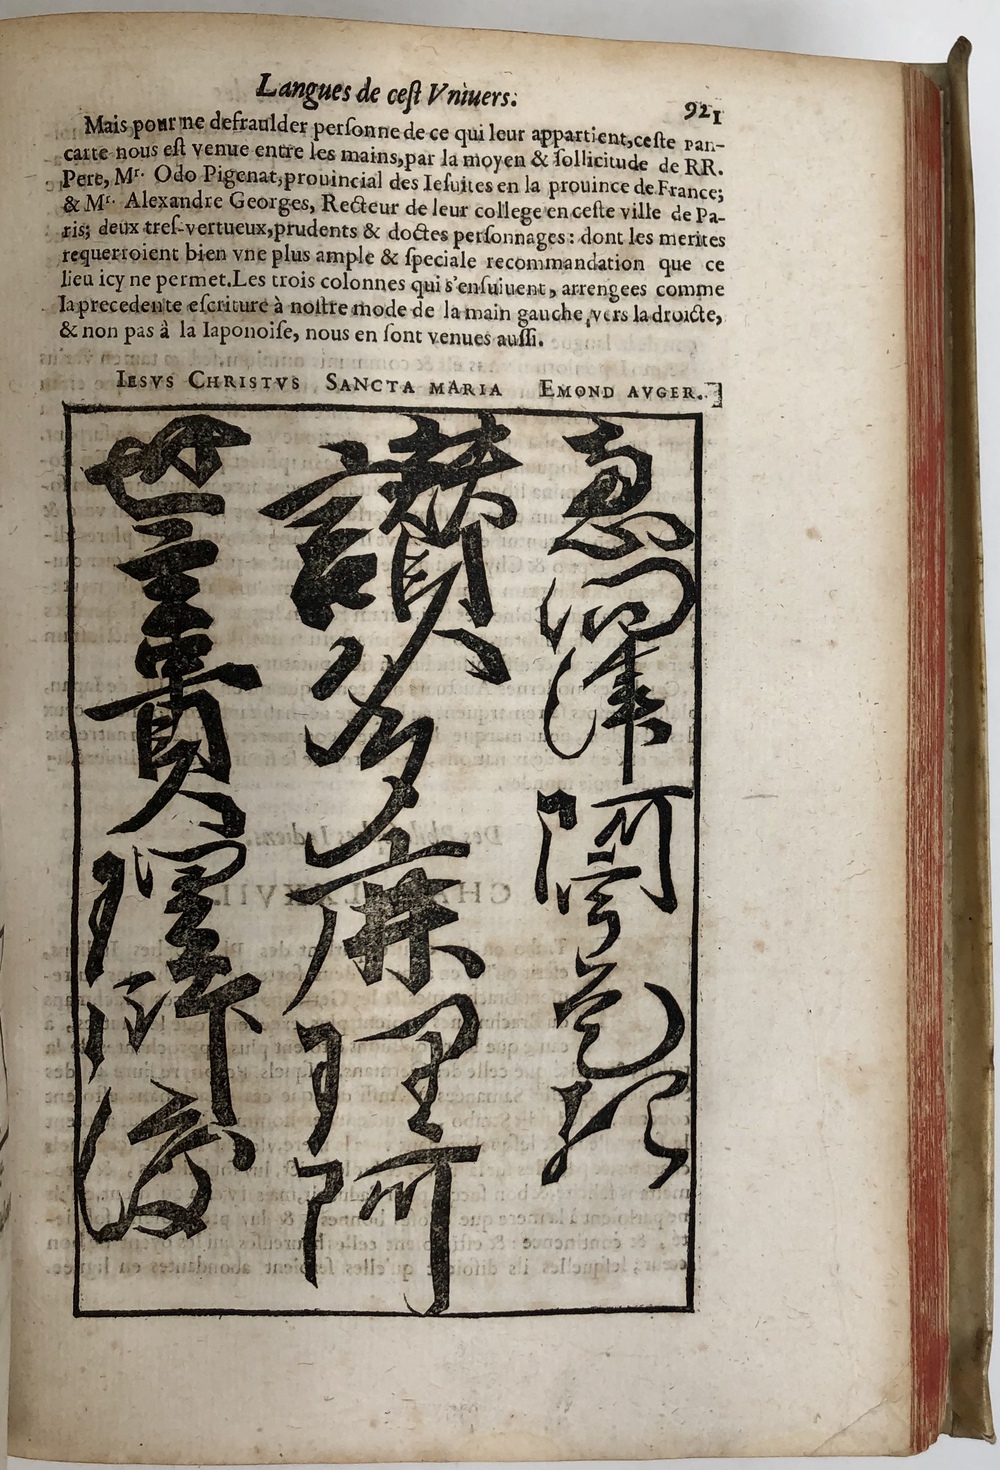 Langues de cest Vniuers. 921
Mais pour ne defraulder personne de ce qui leur appartient, ceste pan-
carte nous est venue entre les mains, par la moyen & sollicitude de RR.
Pere, Mr. Odo Pigenat, prouincial des Iesuites en la prouince de France;
& Mr. Alexandre Georges, Recteur de leur college en ceste ville de Pa-
ris; deux tres-vertueux, prudents & doctes personnages: dont les merites
requerroient bien vne plus ample & speciale recommandation que ce
lieu icy ne permet. Les trois colonnes qui s'ensuiuent, arrengees comme
la precedente escriture à nostre mode de la main gauche, vers la droicte,
& non pas à la Iaponoise, nous en sont venues aussi.
IESVS CHRISTVS SANCTA MARIA EMOND AVGER.
讃多麻理阿